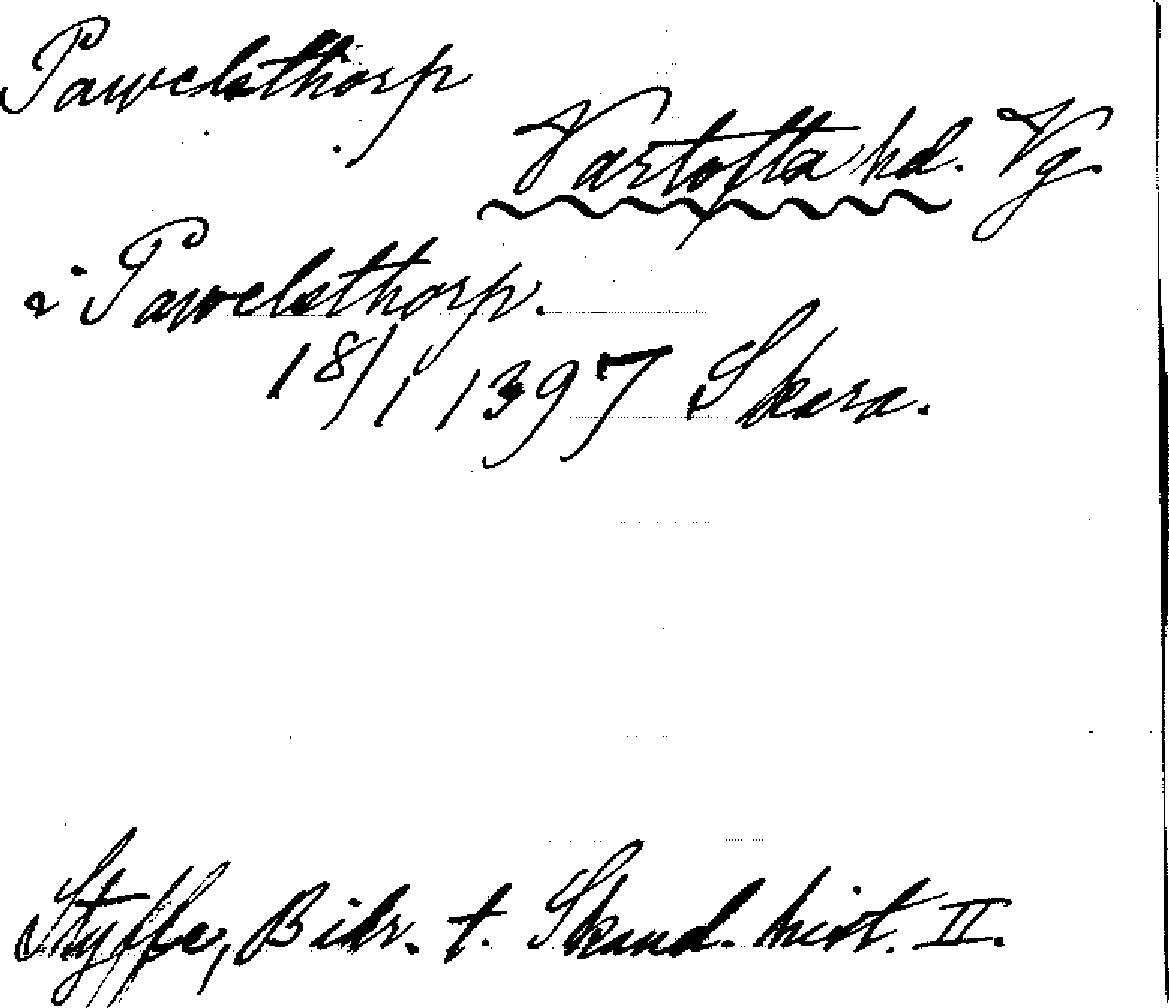 Pawelsthorp
Vartofta hd. Vg.
i Pawelsthorp.
18/1 1397 Skara.
Styffe, Bidr. t. Skand. hist. II.